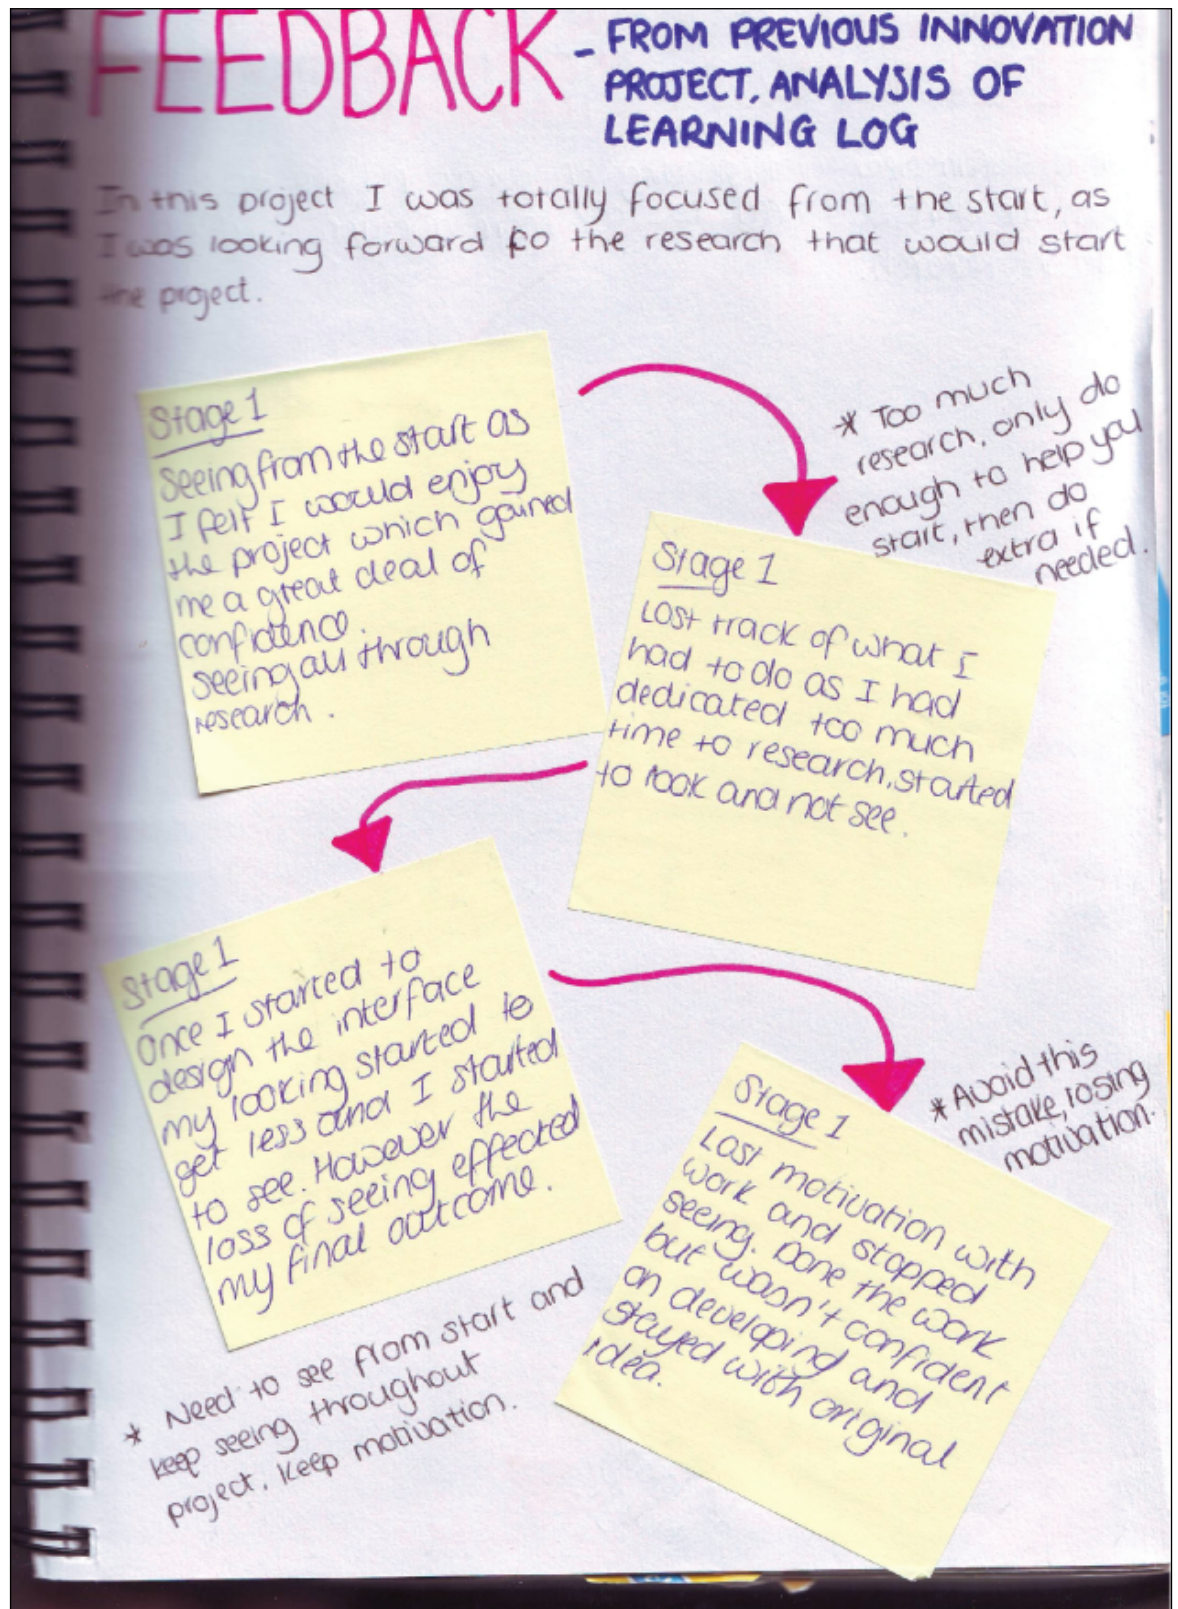 FEEDBACK - FROM PREVIOUS INNOVATION
PROJECT, ANALYSIS OF
LEARNING LOG
In this project I was totally focused from the start, as
I was looking forward to the research that would start
the project.
Stage 1
Seeing from the start as
I felt I would enjoy
the project which gained
me a great deal of
confidence.
Seeing all through
research.
* Too much
research, only do
enough to help you
start, then do
extra if
needed.
Stage 1
Lost track of what I
had to do as I had
dedicated too much
time to research, started
to look and not see.
Stage 1
Once I started to
design the interface
my looking started to
get less and I started
to see. However the
loss of seeing effected
my final outcome.
* Need to see from start and
keep seeing throughout
project. Keep motivation.
* Avoid this
mistake, losing
motivation.
Stage 1
Lost motivation with
work and stopped
seeing. Done the work
but wasn't confident
on developing and
stayed with original
idea.